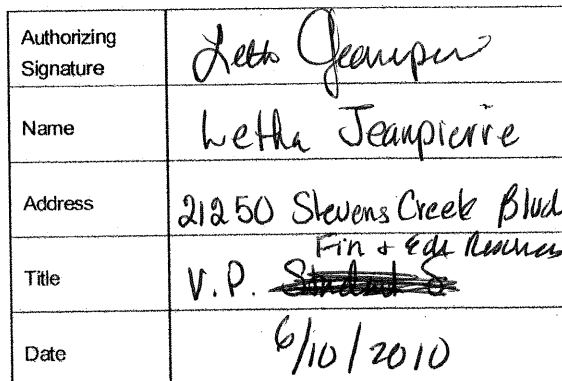 Authorizing
Signature
Letha Jeanpierre
Name
Letha Jeanpierre
Address
21250 Stevens Creek Blvd
Fin + Edu Resources
Title
V.P.
Date
6/10/2010